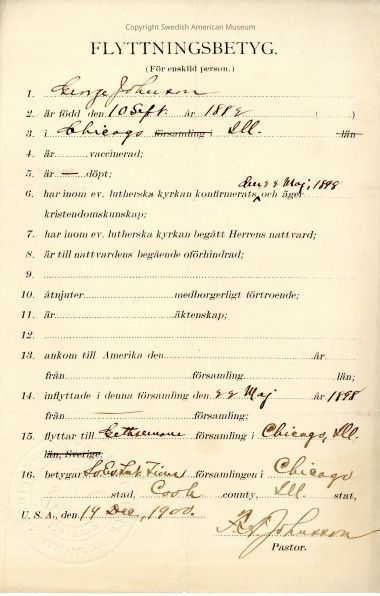 Copyright Swedish American Museum
FLYTTNINGSBETYG.
(För enskild person.)
1. George Johnson
2. är född den 10 Sept. år 1882 ( )
3. i Chicago församling i Ill. län
4. är vaccinerad;
5. är döpt;
den 22 Maj, 1898
6. har inom ev. lutherska kyrkan konfirmerats och äger
kristendomskunskap;
7. har inom ev. lutherska kyrkan begått Herrens nattvard;
8. är till nattvardens begående oförhindrad;
9.
10. åtnjuter medborgerligt förtroende;
11. är äktenskap;
12.
13. ankom till Amerika den år
från församling, län;
14. inflyttade i denna församling den 22 Maj år 1898
från församling;
15. flyttar till Gethsemane församling i Chicago, Ill.
län, Sverige;
16. betygar församlingen i Chicago
stad, Cook county, Ill. stat,
U. S. A., den 14 Dec., 1900.
Johnsson
Pastor.